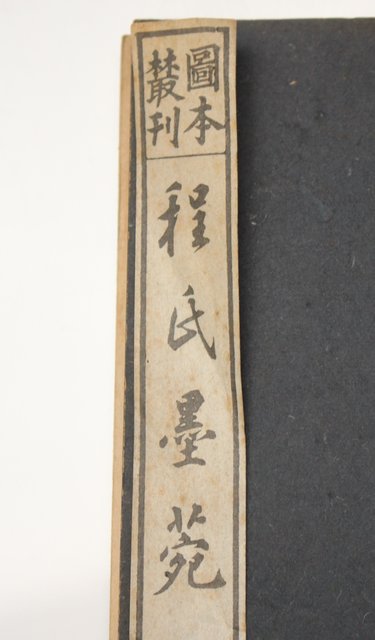 圖本
叢刊
程氏墨苑